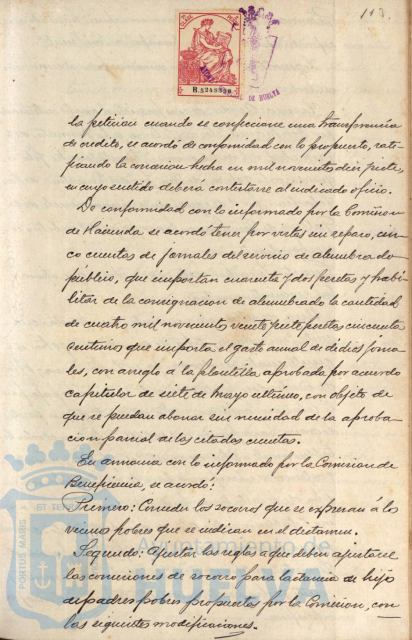 113.
B.5248350
DE HUELVA
la peticion cuando se confeccione una transferencia
de credito, se acordó de conformidad con lo propuesto, rati-
ficando la concesion hecha en mil novecientos diez y siete,
en cuyo sentido deberá contestarse al indicado oficio.
De conformidad con lo informado por la Comision
de Hacienda se acordó tener por vistas sin reparo, cin-
co cuentas de jornales del servicio de alumbrado
público, que importan cuarenta y dos pesetas y habi-
litar de la consignacion de alumbrado la cantidad
de cuatro mil novecientas veinte y siete pesetas cincuenta
centimos que importa el gasto anual de dichos jorna-
les, con arreglo a la plantilla aprobada por acuerdo
capitular de siete de Mayo ultimo, con objeto de
que se puedan abonar sin necesidad de la aproba-
cion parcial de las citadas cuentas.
En armonia con lo informado por la Comision de
Beneficencia, se acordó:
Primero: Conceder los socorros que se expresan á los
vecinos pobres que se indican en el dictamen.
Segundo: Aprobar las reglas a que deben ajustarse
las concesiones de socorro para lactancia de hijos
de padres pobres propuestas por la Comision, con
las siguientes modificaciones.
PORTUS MARIS ET TERRAE
Ayuntamiento de
HUELVA